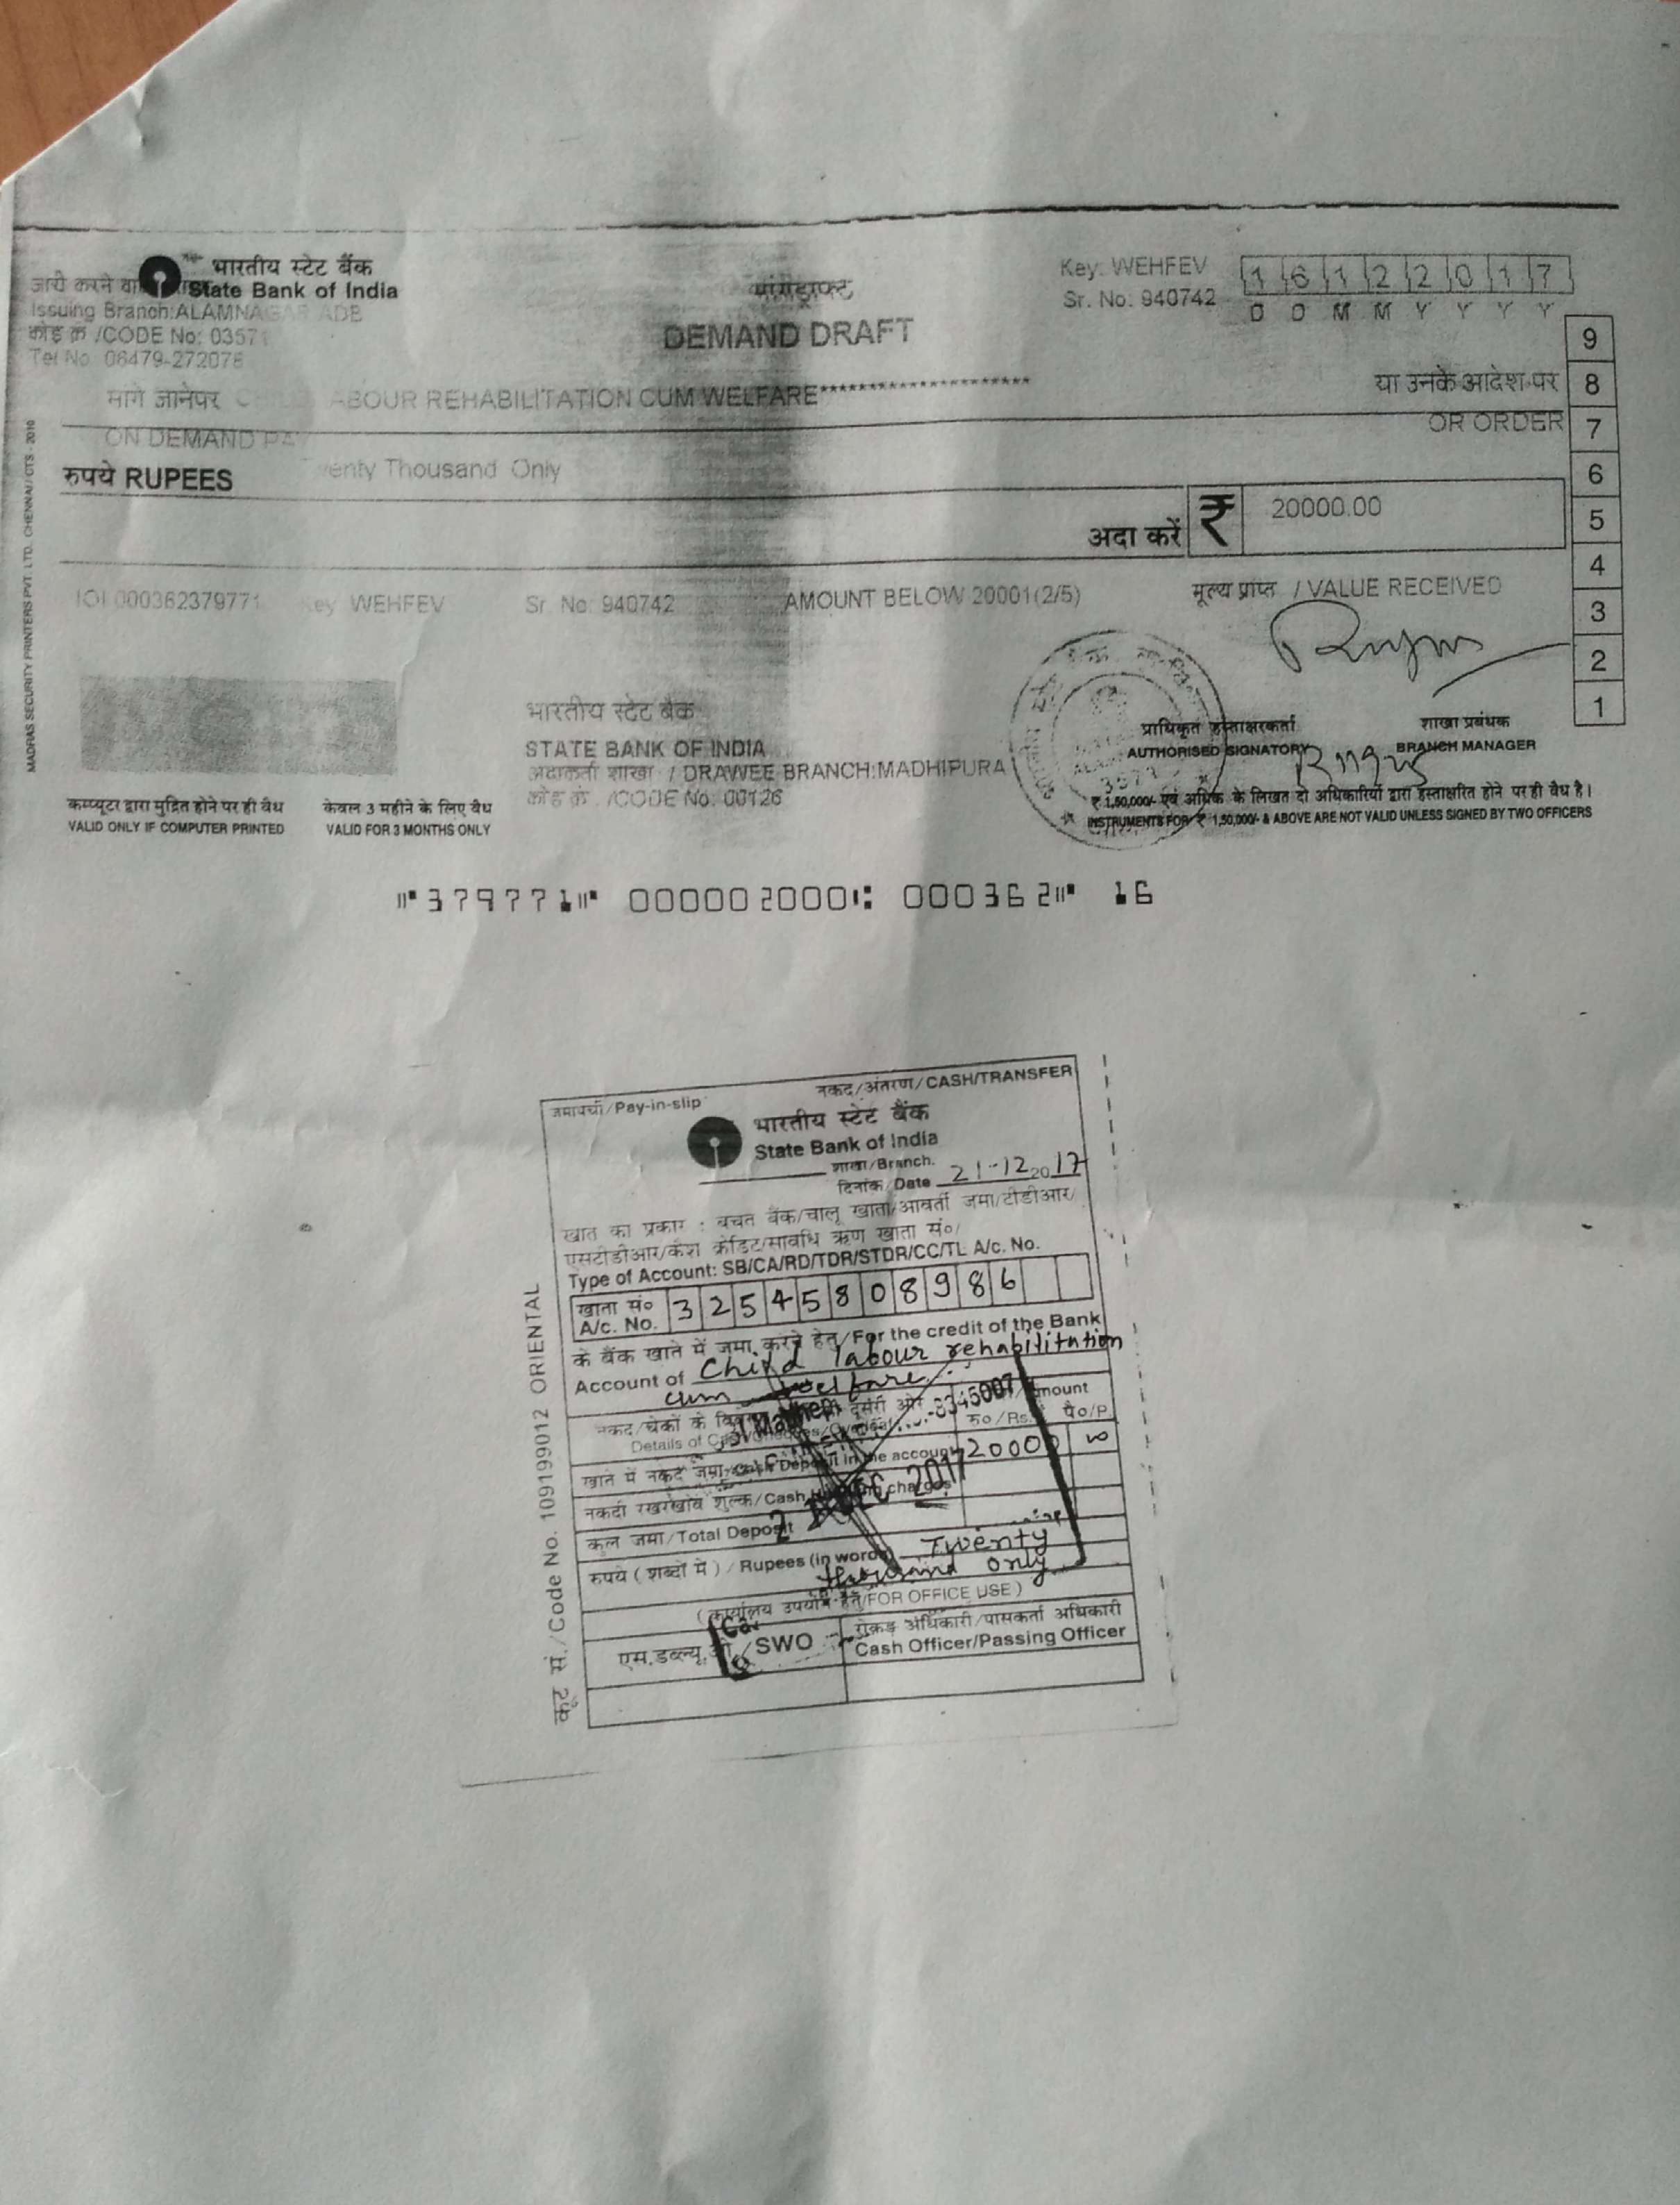 भारतीय स्टेट बैंक
State Bank of India
जारी करने वा
Issuing Branch:ALAMNAGAR ADB
कोड क्र /CODE No: 03571
Tel No 06479-272076
मांगड्राफ्ट
DEMAND DRAFT
Key: WEHFEV
Sr. No: 940742
1 6 1 2 2 0 1 7
D D M M Y Y Y Y
मांगे जानेपर ABOUR REHABILITATION CUM WELFARE********************* या उनके आदेश पर
ON DEMAND PA OR ORDER
रुपये RUPEES wenty Thousand Only
अदा करें ₹ 20000.00
9
8
7
6
5
4
3
2
1
IOI 000362379771 Key WEHFEV Sr. No: 940742 AMOUNT BELOW 20001(2/5)
मूल्य प्राप्त / VALUE RECEIVED
भारतीय स्टेट बैंक
STATE BANK OF INDIA
अदाकर्ता शाखा / DRAWEE BRANCH:MADHIPURA
कोड क्रं. /CODE No: 00126
प्राधिकृत हस्ताक्षरकर्ता
AUTHORISED SIGNATORY
शाखा प्रबंधक
BRANCH MANAGER
कम्प्यूटर द्वारा मुद्रित होने पर ही वैध
VALID ONLY IF COMPUTER PRINTED
केवल 3 महीने के लिए वैध
VALID FOR 3 MONTHS ONLY
₹ 1,50,000/- एवं अधिक के लिखत दो अधिकारियों द्वारा हस्ताक्षरित होने पर ही वैध है।
INSTRUMENTS FOR ₹ 1,50,000/- & ABOVE ARE NOT VALID UNLESS SIGNED BY TWO OFFICERS
MADRAS SECURITY PRINTERS PVT. LTD. CHENNAI/ CTS - 2010
⑈379771⑈ 000002000⑆ 000362⑈ 16
जमापर्ची/Pay-in-slip नकद/अंतरण/CASH/TRANSFER
भारतीय स्टेट बैंक
State Bank of India
शाखा/Branch.
दिनांक/Date 21-12 2017
खाते का प्रकार : बचत बैंक/चालू खाता/आवर्ती जमा/टीडीआर/
एसटीडीआर/कैश क्रेडिट/सावधि ऋण खाता सं०/
Type of Account: SB/CA/RD/TDR/STDR/CC/TL A/c. No.
खाता सं०
A/c. No. 3 2 5 4 5 8 0 8 9 8 6
के बैंक खाते में जमा करने हेतु/For the credit of the Bank
Account of Child labour rehabilitation
cum welfare
नकद/चेकों के दूसरी ओर Amount
रू०/Rs. पै०/P.
खाते में नकद जमा/Cash Deposit in the account 20000 00
नकदी रखरखाव शुल्क/Cash charges
DEC 2017
कुल जमा/Total Deposit
रुपये (शब्दों में) / Rupees (in words) Twenty
thousand only
(कार्यालय उपयोग हेतु/FOR OFFICE USE)
एस.डब्ल्यू.ओ/SWO
रोकड़ अधिकारी/पासकर्ता अधिकारी
Cash Officer/Passing Officer
कूट सं./Code No. 109199012 ORIENTAL